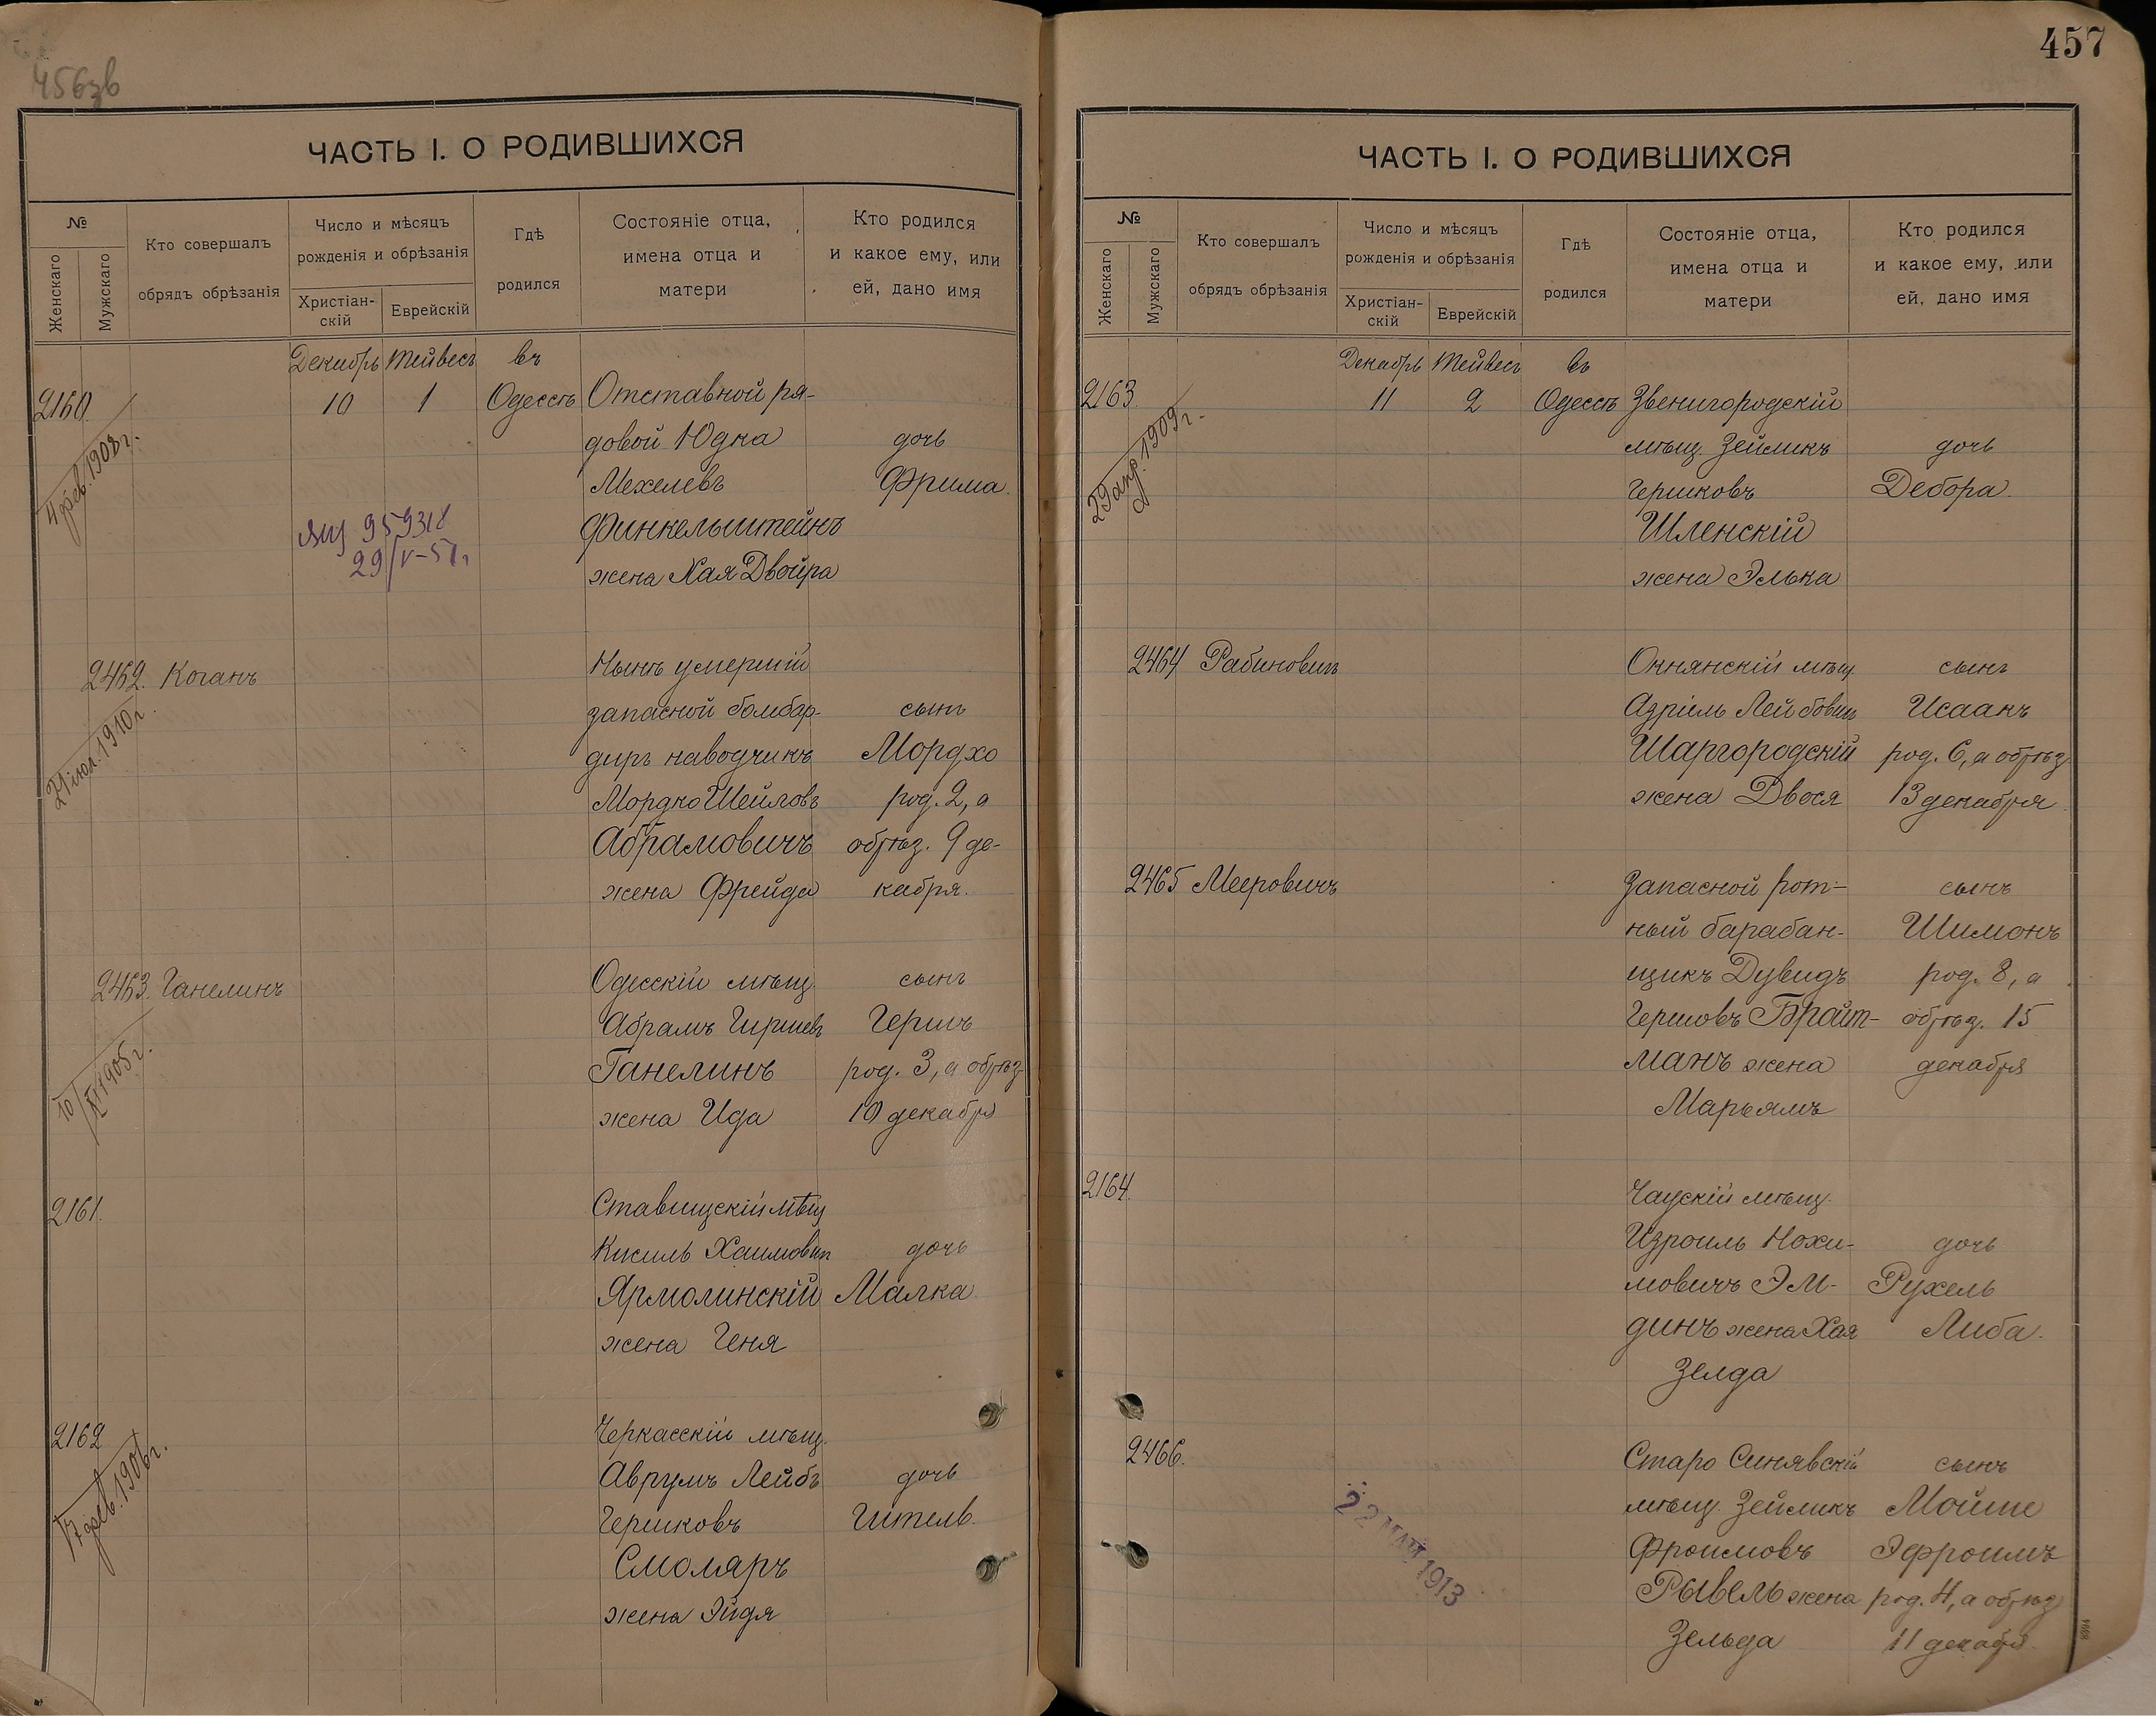 456зв
ЧАСТЬ I. О РОДИВШИХСЯ
№
Женскаго
Мужскаго
Кто совершалъ
обрядъ обрѣзанія
Число и мѣсяцъ
рожденія и обрѣзанія
Христіан-
скій
Еврейскій
Гдѣ
родился
Состояніе отца,
имена отца и
матери
Кто родился
и какое ему, или
ей, дано имя
Декабрь Тейвесъ въ
2160 10 1 Одессѣ Отставной ря-
довой Юдка дочь
Мехелевъ Фрима.
4 фев. 1908 г.
Финкельштейнъ
959318
29/V-51 г
жена Хая Двойра
2462. Коганъ Нынѣ умершій
запасной бомбар- сынъ
диръ наводчикъ Мордхо
21 іюл. 1910 г.
Мордко Шейловъ род. 2, а
Абрамовичъ обрѣз. 9 де-
жена Фрейда кабря.
2463. Ганелинъ Одесскій мѣщ. сынъ
Абрамъ Гиршевъ Гершъ
Ганелинъ род. 3, а обрѣз
10/XI 1905 г.
жена Ида 10 декабря
2161. Ставищскій мѣщ
Кисиль Хаимовичъ дочь
Ярмолинскій Малка
жена Геня
2162 Черкасскій мѣщ.
Аврумъ Лейбъ дочь
Гершковъ Гитель.
17 фев. 1906 г.
Смоляръ
жена Эйдя
457
ЧАСТЬ I. О РОДИВШИХСЯ
№
Женскаго
Мужскаго
Кто совершалъ
обрядъ обрѣзанія
Число и мѣсяцъ
рожденія и обрѣзанія
Христіан-
скій
Еврейскій
Гдѣ
родился
Состояніе отца,
имена отца и
матери
Кто родился
и какое ему, или
ей, дано имя
Декабрь Тейвесъ въ
2163. 11 2 Одессѣ Звенигородскій
мѣщ. Зейликъ дочь
29 апр. 1909 г.
Гершковъ Дебора.
Шленскій
жена Элька
2464 Рабиновичъ Окнянскій мѣщ сынъ
Азріель Лейбовичъ Исаакъ
Шаргородскій род. 6, а обрѣз
жена Двося 13 декабря
2465 Мееровичъ Запасной рот- сынъ
ный барабан- Шимонъ
щикъ Дувидъ род. 8, а
Гершовъ Бройт- обрѣз. 15
манъ жена декабря
Марьямъ
2164. Чаускій мѣщ.
Изроиль Нохи- дочь
мовичъ Эль- Рухель
динъ жена Хая Либа.
Зелда
2466. Старо Синявскій сынъ
мѣщ. Зейликъ Мойше
Фроимовъ Эфроимъ
22 МАЙ 1913
Рывель жена род. 4, а обрѣз
Зельда 11 декабря